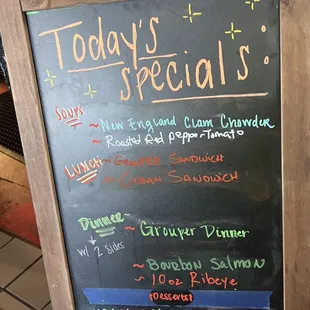 Today's
Specials:
Soups
~ New England Clam Chowder
~ Roasted Red Pepper-Tomato
Lunch
~ Grouper Sandwich
~ Cuban Sandwich
Dinner
w/ 2 Sides
~ Grouper Dinner
~ Bourbon Salmon
~ 10oz Ribeye
Desserts